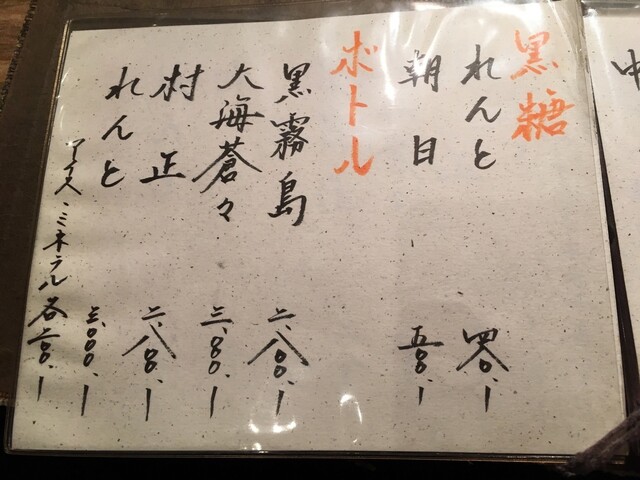 黒糖
れんと 四〇〇.-
朝日 五〇〇.-
ボトル
黒霧島 二、八〇〇.-
大海蒼々
村正 二、八〇〇.-
れんと 三、〇〇〇.-
アイス・ミネラル各二〇〇.-